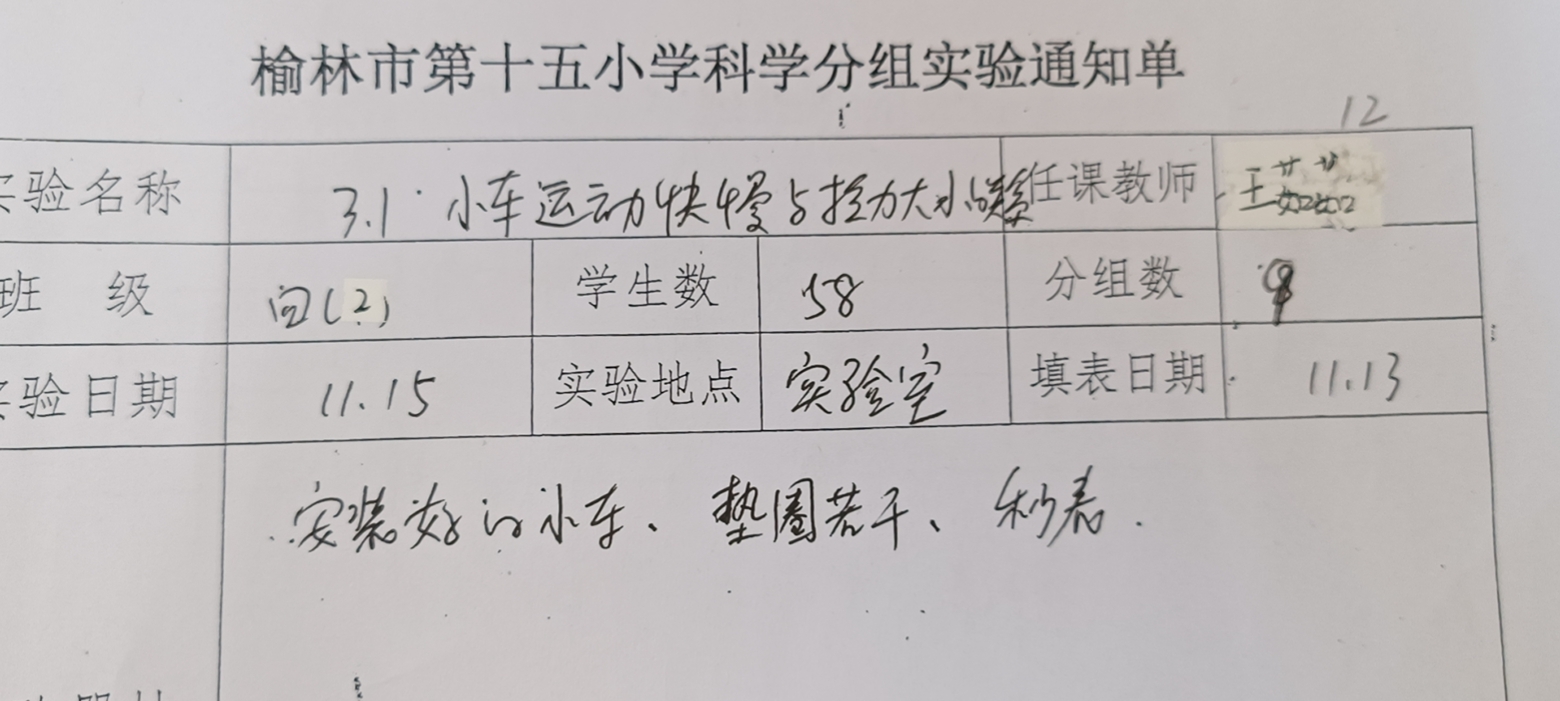 榆林市第十五小学科学分组实验通知单
12
实验名称 3.1 小车运动快慢与拉力大小的关系 任课教师 王茹茹
班 级 四(2) 学生数 58 分组数 9
实验日期 11.15 实验地点 实验室 填表日期 11.13
安装好的小车、垫圈若干、秒表.